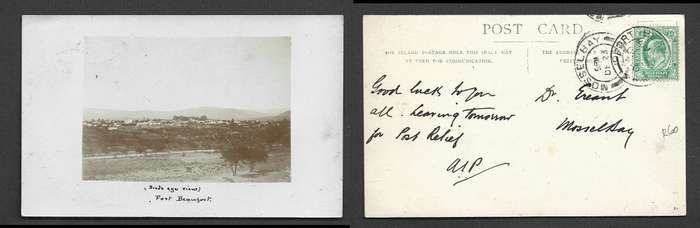 (Birds eye view)
Fort Beaufort.
POST CARD.
FOR INLAND POSTAGE ONLY THIS SPACE MAY
BE USED FOR COMMUNICATION.
THE ADDRESS
MOSSEL BAY
FORT B
Good luck to you
all. Leaving tomorrow
for Post Relief
Dr.
Mossel Bay
R60